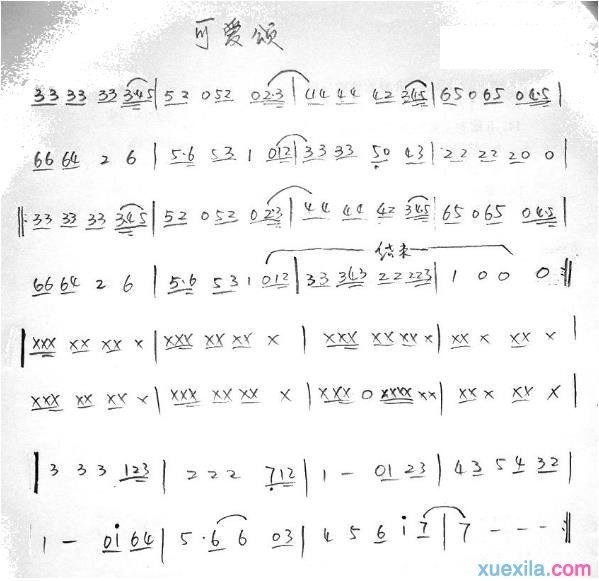 可爱颂
33 33 33 345 | 52 052 023 | 44 44 42 345 | 65 0 65 045 |
66 64 2 6 | 5·6 53 1 012 | 33 33 50 43 | 22 22 20 0 |
‖: 33 33 33 345 | 52 052 023 | 44 44 42 345 | 65 065 045 |
结束
66 64 2 6 | 5·6 53 1 012 | 33 343 22 223 | 1 0 0 0 :‖
| XXX XX XX X | XXX XX XX X | XXX XX XX X | XX X XX X |
XXX XX XX X | XXX XX XX X | XXX 0 XXXX XX | XX X XX X |
| 3 3 3 123 | 2 2 2 712 | 1 - 01 23 | 43 5 4 32 |
1 - 0i 64 | 5·6 6 03 | 4 5 6 i 7 | 7 - - - :‖
xuexila.com